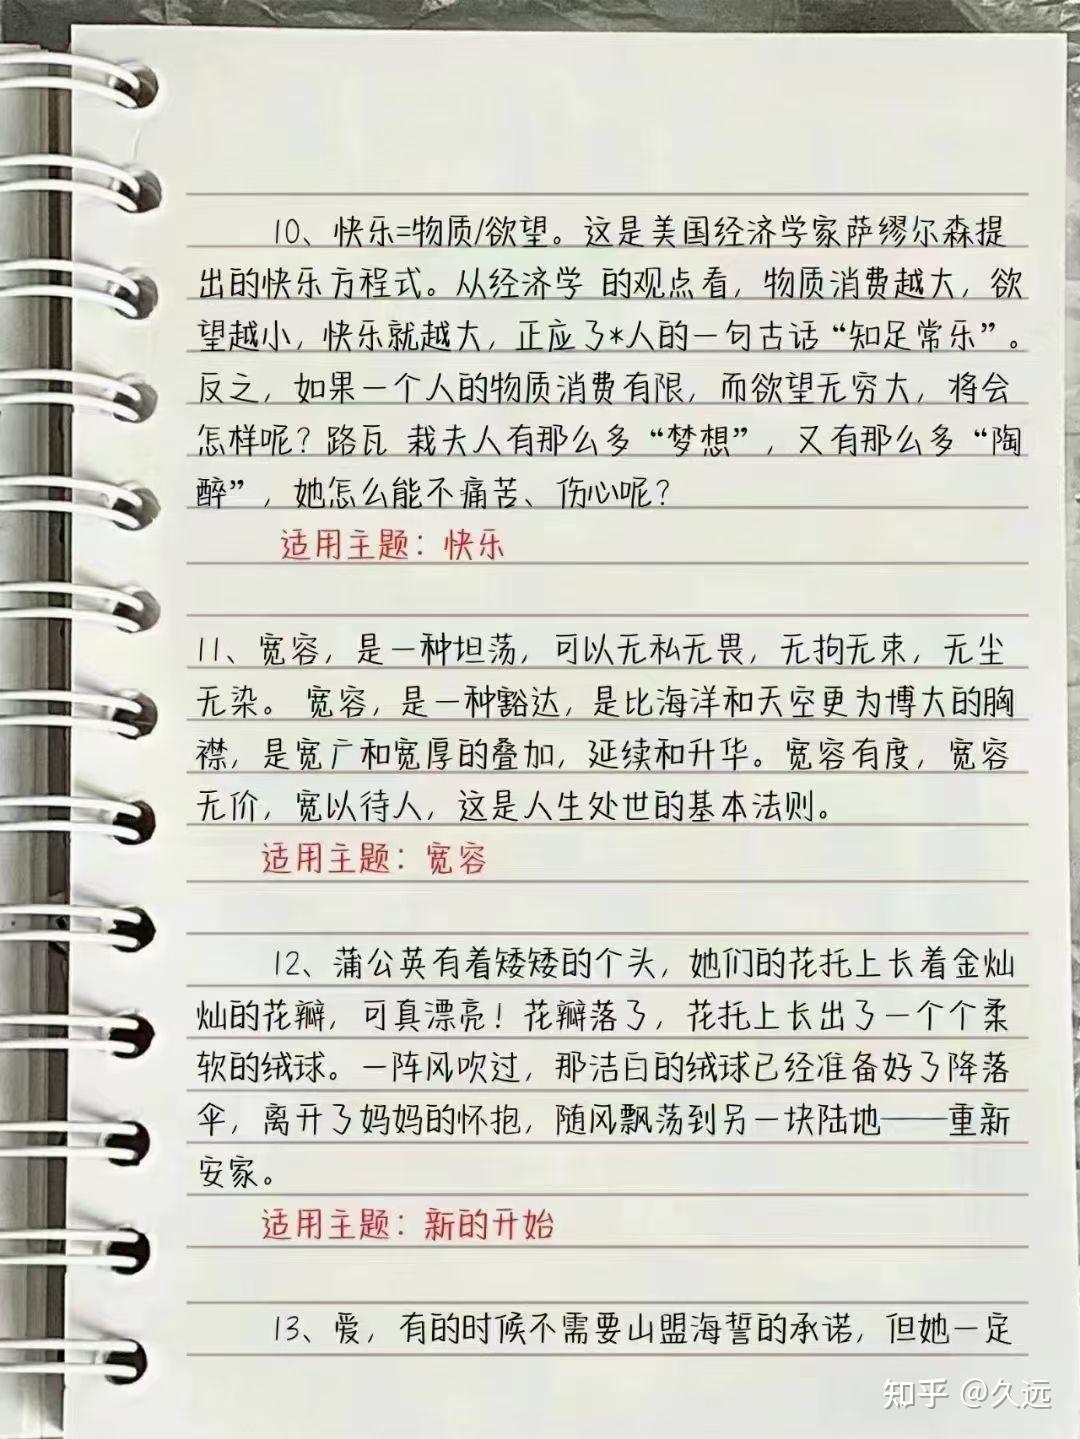 10、快乐=物质/欲望。这是美国经济学家萨缪尔森提
出的快乐方程式。从经济学 的观点看，物质消费越大，欲
望越小，快乐就越大，正应了*人的一句古话“知足常乐”。
反之，如果一个人的物质消费有限，而欲望无穷大，将会
怎样呢？路瓦 栽夫人有那么多“梦想”，又有那么多“陶
醉”，她怎么能不痛苦、伤心呢？
适用主题：快乐
11、宽容，是一种坦荡，可以无私无畏，无拘无束，无尘
无染。 宽容，是一种豁达，是比海洋和天空更为博大的胸
襟，是宽广和宽厚的叠加，延续和升华。宽容有度，宽容
无价，宽以待人，这是人生处世的基本法则。
适用主题：宽容
12、蒲公英有着矮矮的个头，她们的花托上长着金灿
灿的花瓣，可真漂亮！花瓣落了，花托上长出了一个个柔
软的绒球。一阵风吹过，那洁白的绒球已经准备好了降落
伞，离开了妈妈的怀抱，随风飘荡到另一块陆地——重新
安家。
适用主题：新的开始
13、爱，有的时候不需要山盟海誓的承诺，但她一定
知乎 @久远